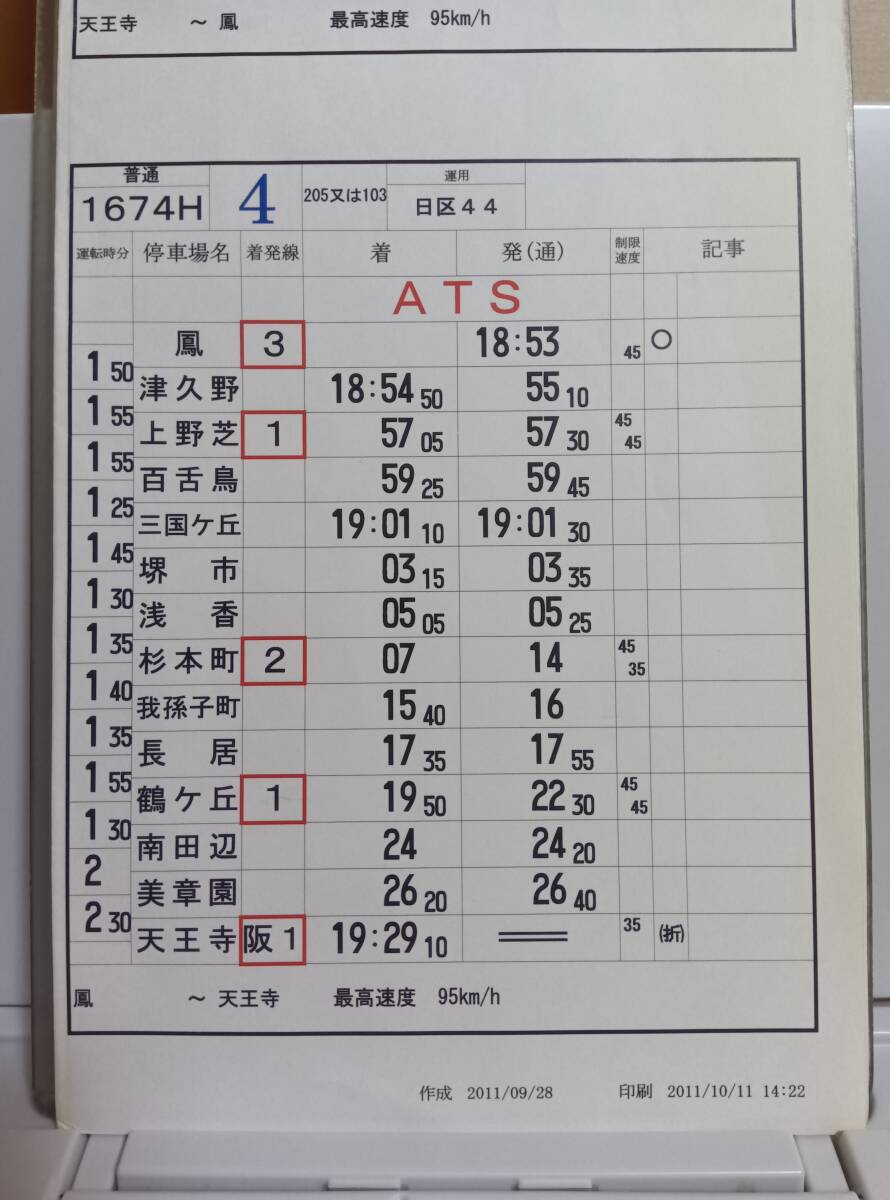 天王寺 ～ 鳳 最高速度 95km/h
普通 運用
1674H 4 205又は103 日区44
運転時分 停車場名 着発線 着 発(通) 制限速度 記事
ATS
鳳 3 18:53 45 ○
1 50
津久野 18:54 50 55 10
1 55
上野芝 1 57 05 57 30 45 45
1 55
百舌鳥 59 25 59 45
1 25
三国ケ丘 19:01 10 19:01 30
1 45
堺市 03 15 03 35
1 30
浅香 05 05 05 25
1 35
杉本町 2 07 14 45 35
1 40
我孫子町 15 40 16
1 35
長居 17 35 17 55
1 55
鶴ケ丘 1 19 50 22 30 45 45
1 30
南田辺 24 24 20
2
美章園 26 20 26 40
2 30
天王寺 阪1 19:29 10 ══ 35 (折)
鳳 ～ 天王寺 最高速度 95km/h
作成 2011/09/28 印刷 2011/10/11 14:22